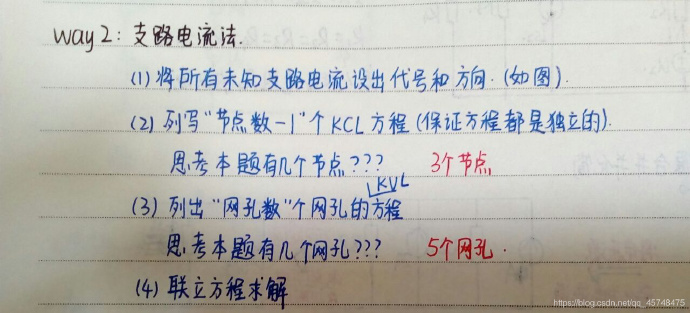 way2：支路电流法.
(1) 将所有未知支路电流设出代号和方向.(如图).
(2) 列写"节点数-1"个KCL方程(保证方程都是独立的).
思考本题有几个节点??? 3个节点
KVL
(3) 列出"网孔数"个网孔的方程
思考本题有几个网孔??? 5个网孔.
(4) 联立方程求解
https://blog.csdn.net/qq_45748475